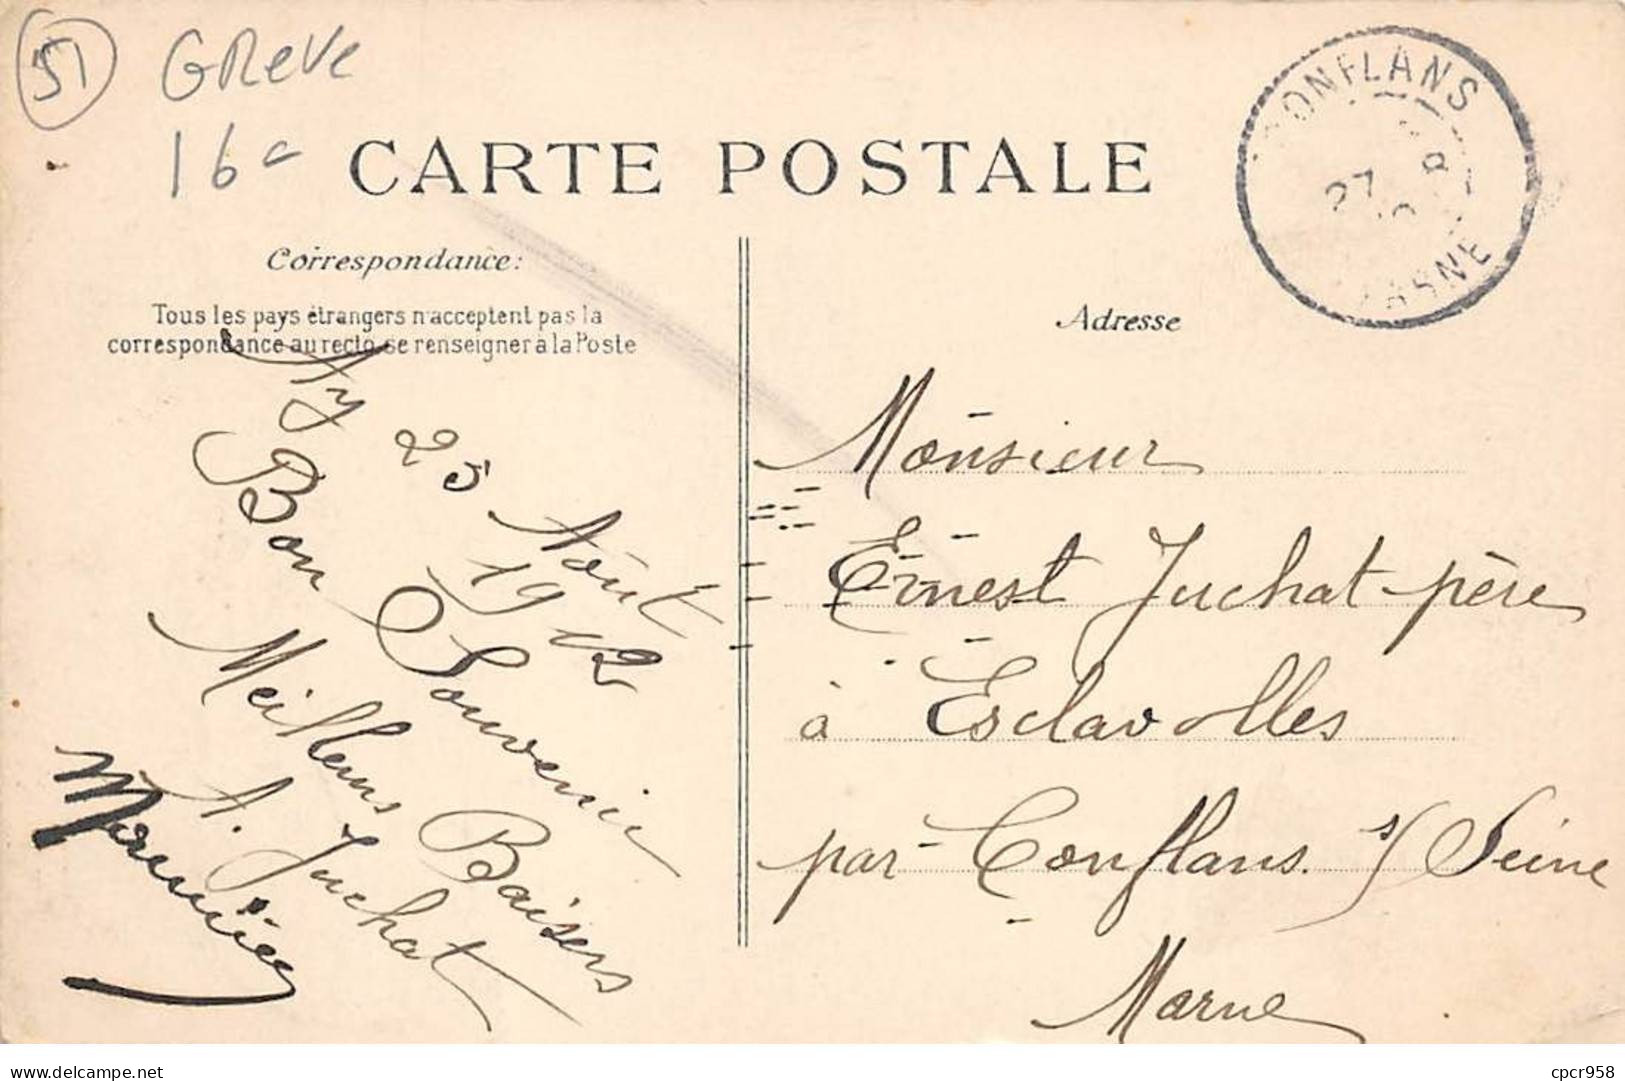 51
GReVe
16
CARTE POSTALE
CONFLANS
27
MARNE
Correspondance:
Tous les pays étrangers n'acceptent pas la
correspondance au recto, se renseigner à la Poste
Adresse
Ay
25 Août
1912
Bon Souvenir
Meilleurs Baisers
A. Juchat
Monsieur
Ernest Juchat père
à Esclavolles
par Conflans s/ Seine
Marne
cpcr958